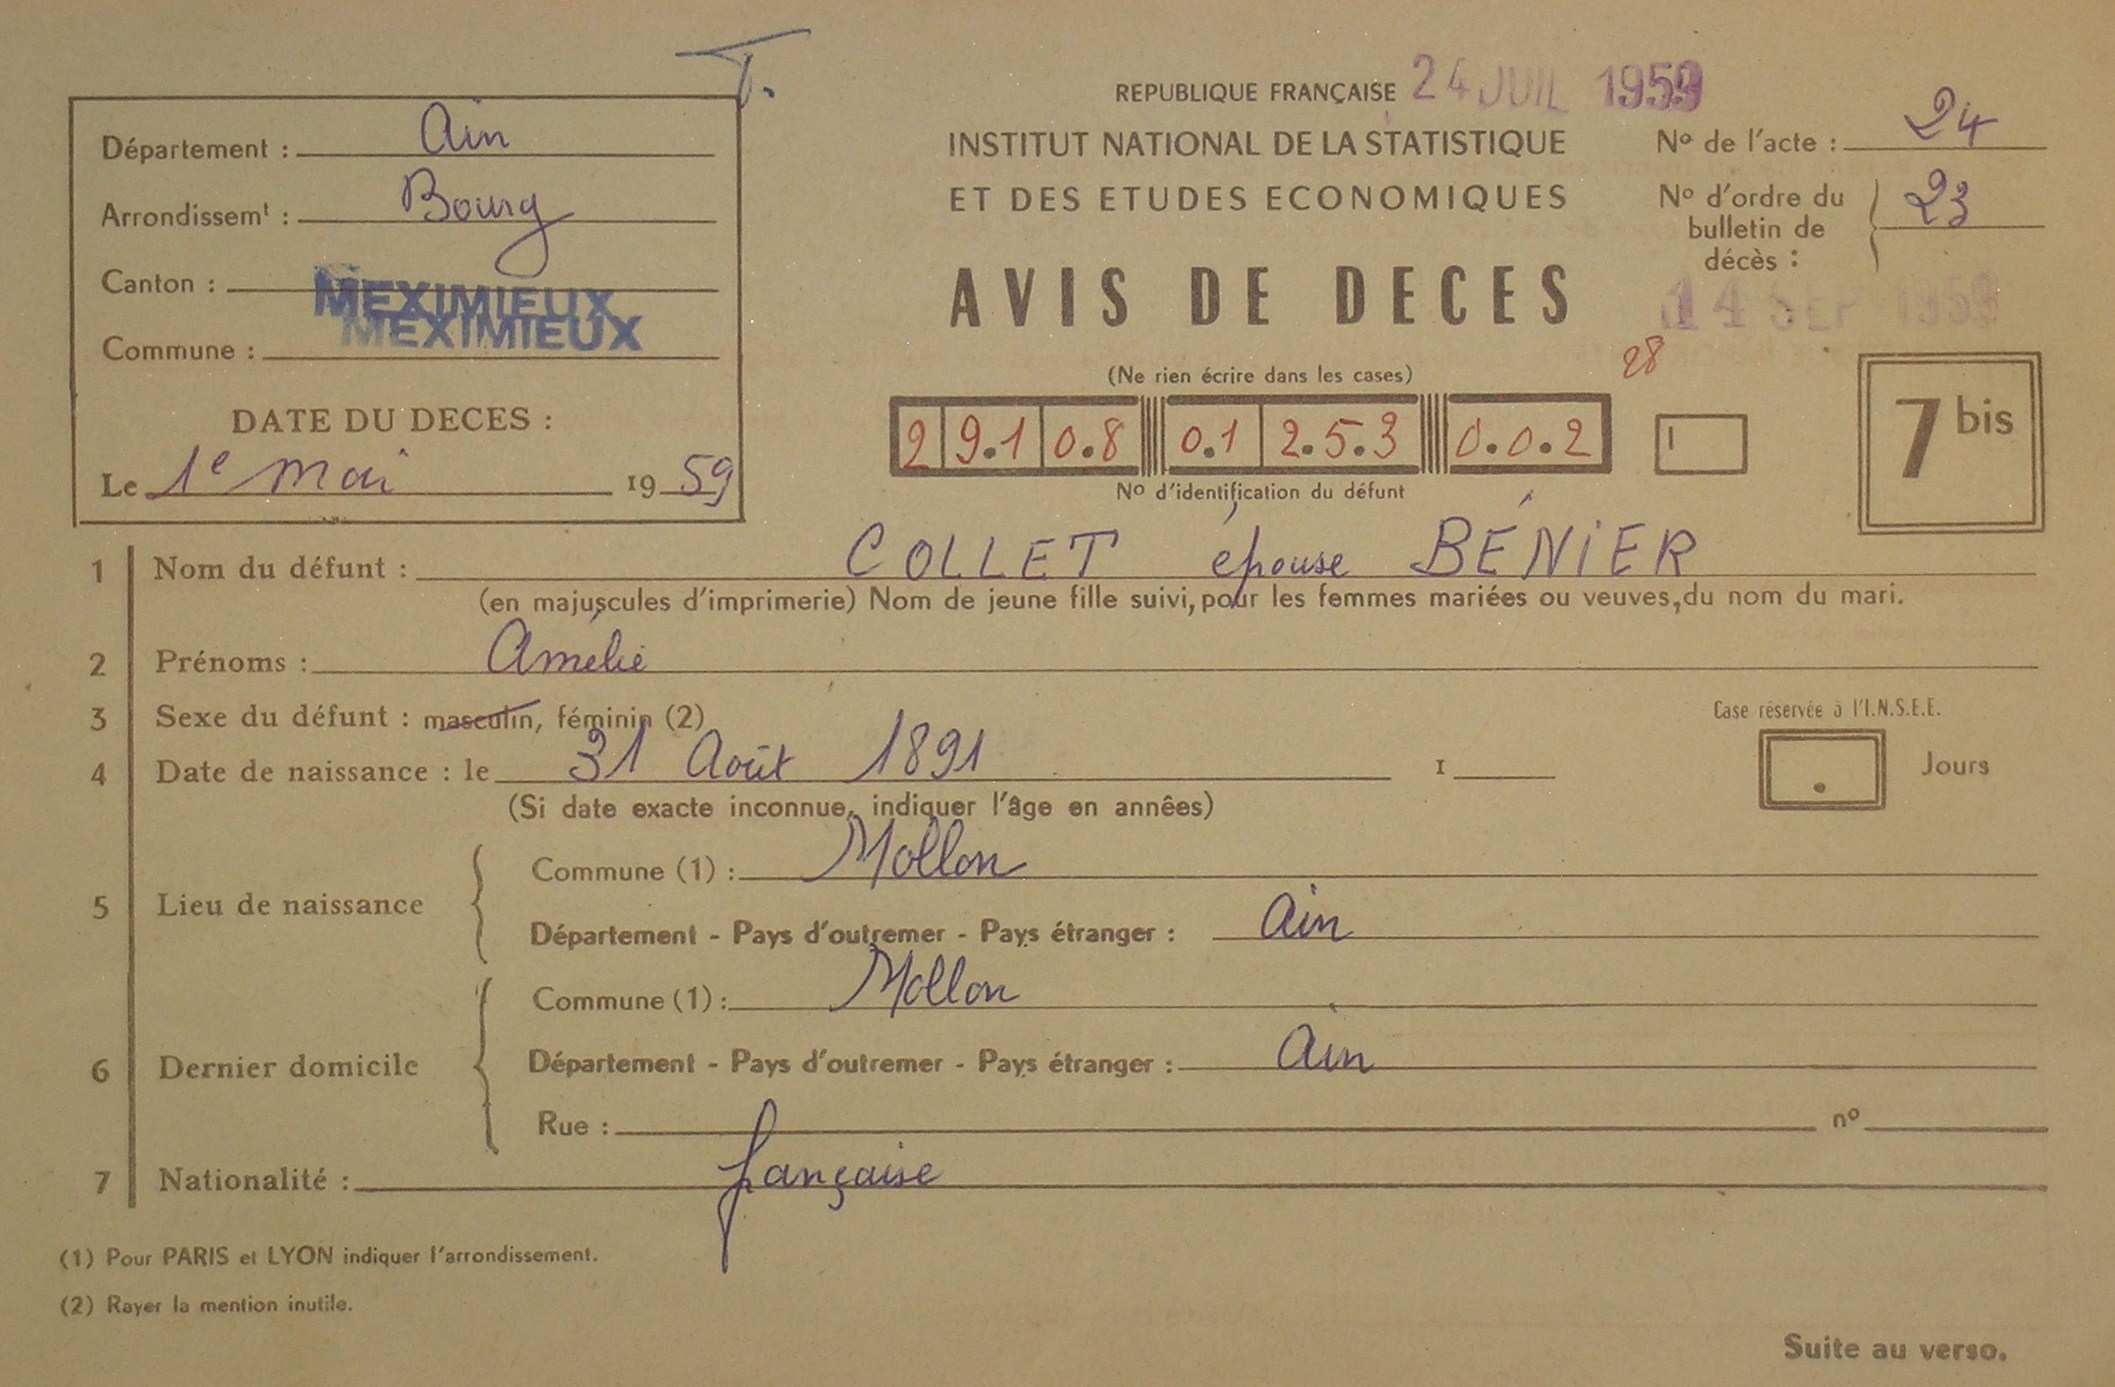 T.
REPUBLIQUE FRANÇAISE 24 JUIL 1959
INSTITUT NATIONAL DE LA STATISTIQUE
ET DES ETUDES ECONOMIQUES
AVIS DE DECES
Département : Ain
Arrondissemt : Bourg
Canton : MEXIMIEUX
Commune : MEXIMIEUX
DATE DU DECES :
Le 1e mai 1959
No de l'acte : 24
No d'ordre du bulletin de décès : 23
14 SEP 1959
28
(Ne rien écrire dans les cases)
2 9.1 0.8 0.1 2.5.3 0.0.2
No d'identification du défunt
7 bis
1 Nom du défunt : COLLET épouse BÉNIER
(en majuscules d'imprimerie) Nom de jeune fille suivi, pour les femmes mariées ou veuves, du nom du mari.
2 Prénoms : Amélie
3 Sexe du défunt : masculin, féminin (2)
Case réservée à l'I.N.S.E.E.
4 Date de naissance : le 31 Août 1891 1
Jours
(Si date exacte inconnue, indiquer l'âge en années)
5 Lieu de naissance
Commune (1) : Mollon
Département - Pays d'outremer - Pays étranger : Ain
6 Dernier domicile
Commune (1) : Mollon
Département - Pays d'outremer - Pays étranger : Ain
Rue : no
7 Nationalité : française
(1) Pour PARIS et LYON indiquer l'arrondissement.
(2) Rayer la mention inutile.
Suite au verso.